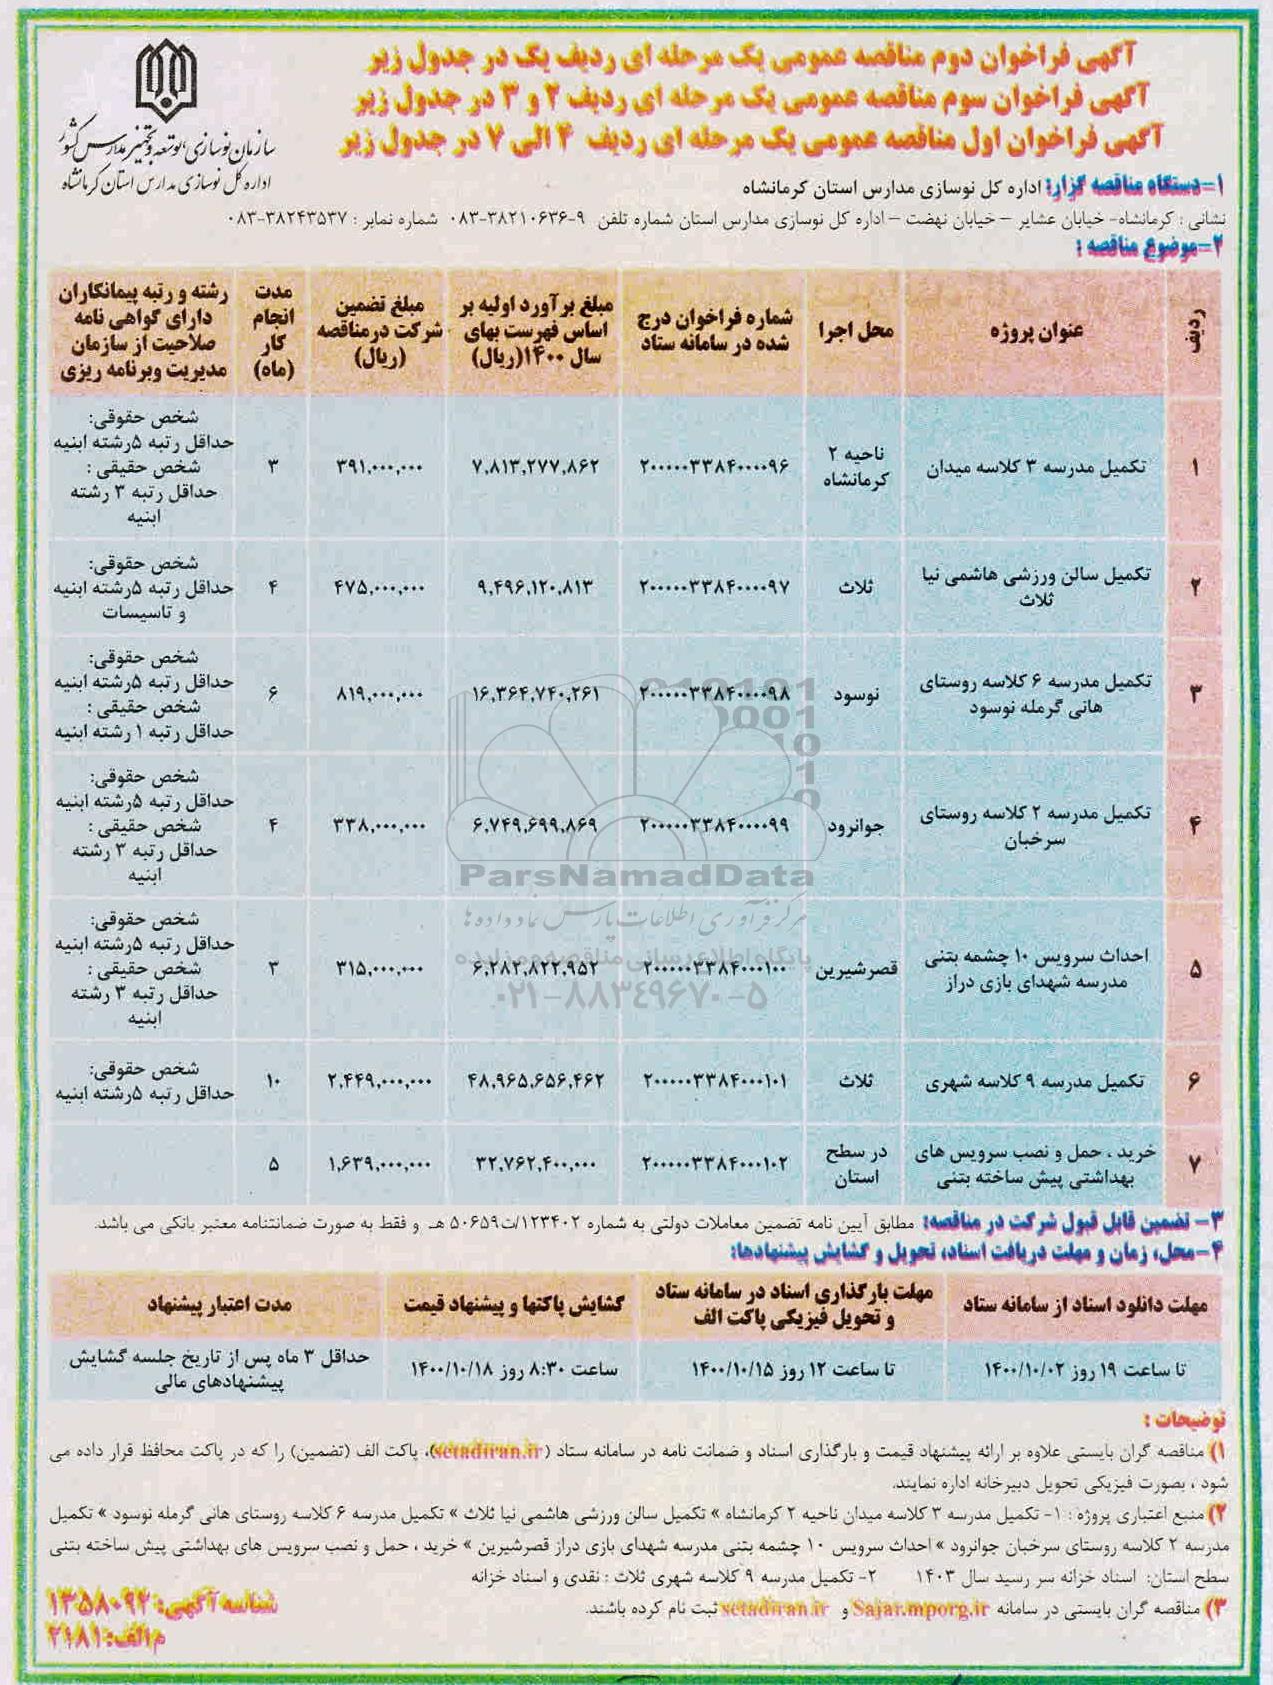 آگهی فراخوان دوم مناقصه عمومی یک مرحله ای ردیف یک در جدول زیر
آگهی فراخوان سوم مناقصه عمومی یک مرحله ای ردیف ۲ و ۳ در جدول زیر
آگهی فراخوان اول مناقصه عمومی یک مرحله ای ردیف ۴ الی ۷ در جدول زیر
سازمان نوسازی، توسعه و تجهیز مدارس کشور
اداره کل نوسازی مدارس استان کرمانشاه
۱-دستگاه مناقصه گزار: اداره کل نوسازی مدارس استان کرمانشاه
نشانی : کرمانشاه- خیابان عشایر – خیابان نهضت – اداره کل نوسازی مدارس استان شماره تلفن ۹-۳۸۲۱۰۶۳۶-۰۸۳ شماره نمابر : ۳۸۲۴۳۵۳۷-۰۸۳
۲-موضوع مناقصه :
ردیف | عنوان پروژه | محل اجرا | شماره فراخوان درج شده در سامانه ستاد | مبلغ برآورد اولیه بر اساس فهرست بهای سال ۱۴۰۰(ریال) | مبلغ تضمین شرکت درمناقصه (ریال) | مدت انجام کار (ماه) | رشته و رتبه پیمانکاران دارای گواهی نامه صلاحیت از سازمان مدیریت وبرنامه ریزی
۱ | تکمیل مدرسه ۳ کلاسه میدان | ناحیه ۲ کرمانشاه | ۲۰۰۰۰۰۳۳۸۴۰۰۰۰۹۶ | ۷,۸۱۳,۲۷۷,۸۶۲ | ۳۹۱,۰۰۰,۰۰۰ | ۳ | شخص حقوقی: حداقل رتبه ۵رشته ابنیه شخص حقیقی : حداقل رتبه ۳ رشته ابنیه
۲ | تکمیل سالن ورزشی هاشمی نیا ثلاث | ثلاث | ۲۰۰۰۰۰۳۳۸۴۰۰۰۰۹۷ | ۹,۴۹۶,۱۲۰,۸۱۳ | ۴۷۵,۰۰۰,۰۰۰ | ۴ | شخص حقوقی: حداقل رتبه ۵رشته ابنیه و تاسیسات
۳ | تکمیل مدرسه ۶ کلاسه روستای هانی گرمله نوسود | نوسود | ۲۰۰۰۰۰۳۳۸۴۰۰۰۰۹۸ | ۱۶,۳۶۴,۷۴۰,۲۶۱ | ۸۱۹,۰۰۰,۰۰۰ | ۶ | شخص حقوقی: حداقل رتبه ۵رشته ابنیه شخص حقیقی : حداقل رتبه ۱ رشته ابنیه
۴ | تکمیل مدرسه ۲ کلاسه روستای سرخبان | جوانرود | ۲۰۰۰۰۰۳۳۸۴۰۰۰۰۹۹ | ۶,۷۴۹,۶۹۹,۸۶۹ | ۳۳۸,۰۰۰,۰۰۰ | ۴ | شخص حقوقی: حداقل رتبه ۵رشته ابنیه شخص حقیقی : حداقل رتبه ۳ رشته ابنیه
ParsNamadData
مرکز فرآوری اطلاعات پارس نماد داده ها
پایگاه اطلاع رسانی مناقصه و مزایده
۰۲۱-۸۸۳۴۹۶۷۰-۵
۵ | احداث سرویس ۱۰ چشمه بتنی مدرسه شهدای بازی دراز | قصرشیرین | ۲۰۰۰۰۰۳۳۸۴۰۰۰۱۰۰ | ۶,۲۸۲,۸۲۲,۹۵۲ | ۳۱۵,۰۰۰,۰۰۰ | ۳ | شخص حقوقی: حداقل رتبه ۵رشته ابنیه شخص حقیقی : حداقل رتبه ۳ رشته ابنیه
۶ | تکمیل مدرسه ۹ کلاسه شهری | ثلاث | ۲۰۰۰۰۰۳۳۸۴۰۰۰۱۰۱ | ۴۸,۹۶۵,۶۵۶,۴۶۲ | ۲,۴۴۹,۰۰۰,۰۰۰ | ۱۰ | شخص حقوقی: حداقل رتبه ۵رشته ابنیه
۷ | خرید ، حمل و نصب سرویس های بهداشتی پیش ساخته بتنی | در سطح استان | ۲۰۰۰۰۰۳۳۸۴۰۰۰۱۰۲ | ۳۲,۷۶۲,۴۰۰,۰۰۰ | ۱,۶۳۹,۰۰۰,۰۰۰ | ۵
۳- تضمین قابل قبول شرکت در مناقصه: مطابق آیین نامه تضمین معاملات دولتی به شماره ۱۲۳۴۰۲/ت۵۰۶۵۹ هـ و فقط به صورت ضمانتنامه معتبر بانکی می باشد.
۴-محل، زمان و مهلت دریافت اسناد، تحویل و گشایش پیشنهادها:
مهلت دانلود اسناد از سامانه ستاد | مهلت بارگذاری اسناد در سامانه ستاد و تحویل فیزیکی پاکت الف | گشایش پاکتها و پیشنهاد قیمت | مدت اعتبار پیشنهاد
تا ساعت ۱۹ روز ۱۴۰۰/۱۰/۰۲ | تا ساعت ۱۲ روز ۱۴۰۰/۱۰/۱۵ | ساعت ۸:۳۰ روز ۱۴۰۰/۱۰/۱۸ | حداقل ۳ ماه پس از تاریخ جلسه گشایش پیشنهادهای مالی
توضیحات :
۱) مناقصه گران بایستی علاوه بر ارائه پیشنهاد قیمت و بارگذاری اسناد و ضمانت نامه در سامانه ستاد (setadiran.ir)، پاکت الف (تضمین) را که در پاکت محافظ قرار داده می
شود ، بصورت فیزیکی تحویل دبیرخانه اداره نمایند.
۲) منبع اعتباری پروژه : ۱- تکمیل مدرسه ۳ کلاسه میدان ناحیه ۲ کرمانشاه » تکمیل سالن ورزشی هاشمی نیا ثلاث » تکمیل مدرسه ۶ کلاسه روستای هانی گرمله نوسود » تکمیل
مدرسه ۲ کلاسه روستای سرخبان جوانرود » احداث سرویس ۱۰ چشمه بتنی مدرسه شهدای بازی دراز قصرشیرین » خرید ، حمل و نصب سرویس های بهداشتی پیش ساخته بتنی
سطح استان: اسناد خزانه سر رسید سال ۱۴۰۳ ۲- تکمیل مدرسه ۹ کلاسه شهری ثلاث : نقدی و اسناد خزانه
۳) مناقصه گران بایستی در سامانه Sajar.mporg.ir و setadiran.ir ثبت نام کرده باشند.
شناسه آگهی: ۱۳۵۸۰۹۲
م الف: ۲۱۸۱